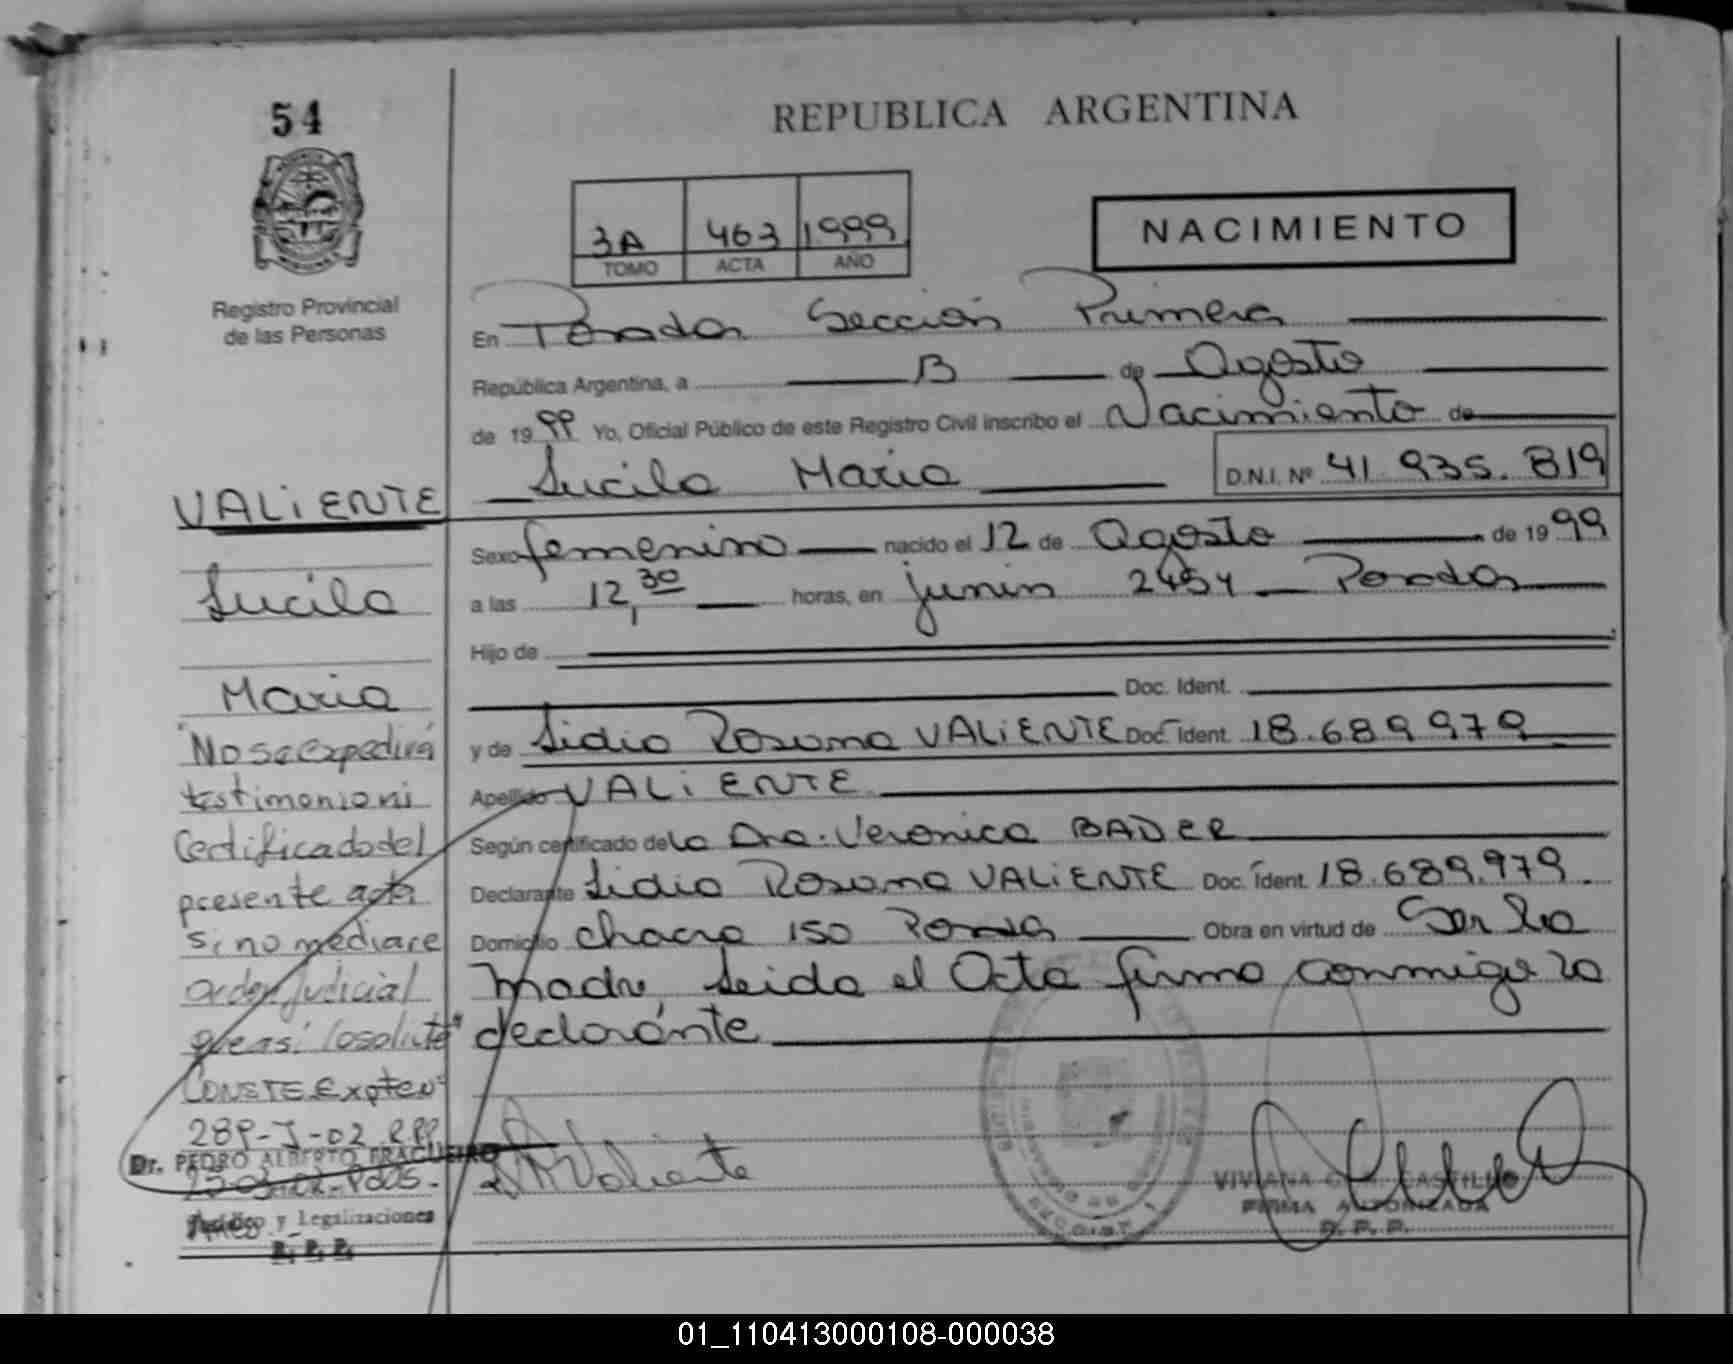 54
REPUBLICA ARGENTINA
3A 463 1999
TOMO ACTA AÑO
NACIMIENTO
Registro Provincial
de las Personas
En Posadas Sección Primera
República Argentina, a 13 de Agosto
de 1999 Yo, Oficial Público de este Registro Civil inscribo el Nacimiento de
Lucila Maria D.N.I. Nº 41.935.819
VALIENTE
Lucila
Maria
Sexo femenino nacido el 12 de Agosto de 1999
a las 12,30 horas, en junin 2454 Posadas
Hijo de
Doc. Ident.
y de Lidia Rosana VALIENTE Doc. Ident. 18.689.979
Apellido VALIENTE
Según certificado de la Dra. Veronica BADER
Declarante Lidia Rosana VALIENTE Doc. Ident. 18.689.979.
Domicilio chacra 150 Posadas Obra en virtud de Ser la
madre, Leida el Acta firma conmigo la
declarante
"No se expedirá
testimonio ni
Certificado del
presente acta
si no mediare
orden judicial
que así lo solicite"
CONSTE Expte Nº
289-J-02 R.P.P.
Dr. PEDRO ALBERTO FRAGUEIRO
Jurídico y Legalizaciones
R. P. P.
Valiente
VIVIANA CASTILLO
FIRMA AUTORIZADA
R. P. P.
01_110413000108-000038